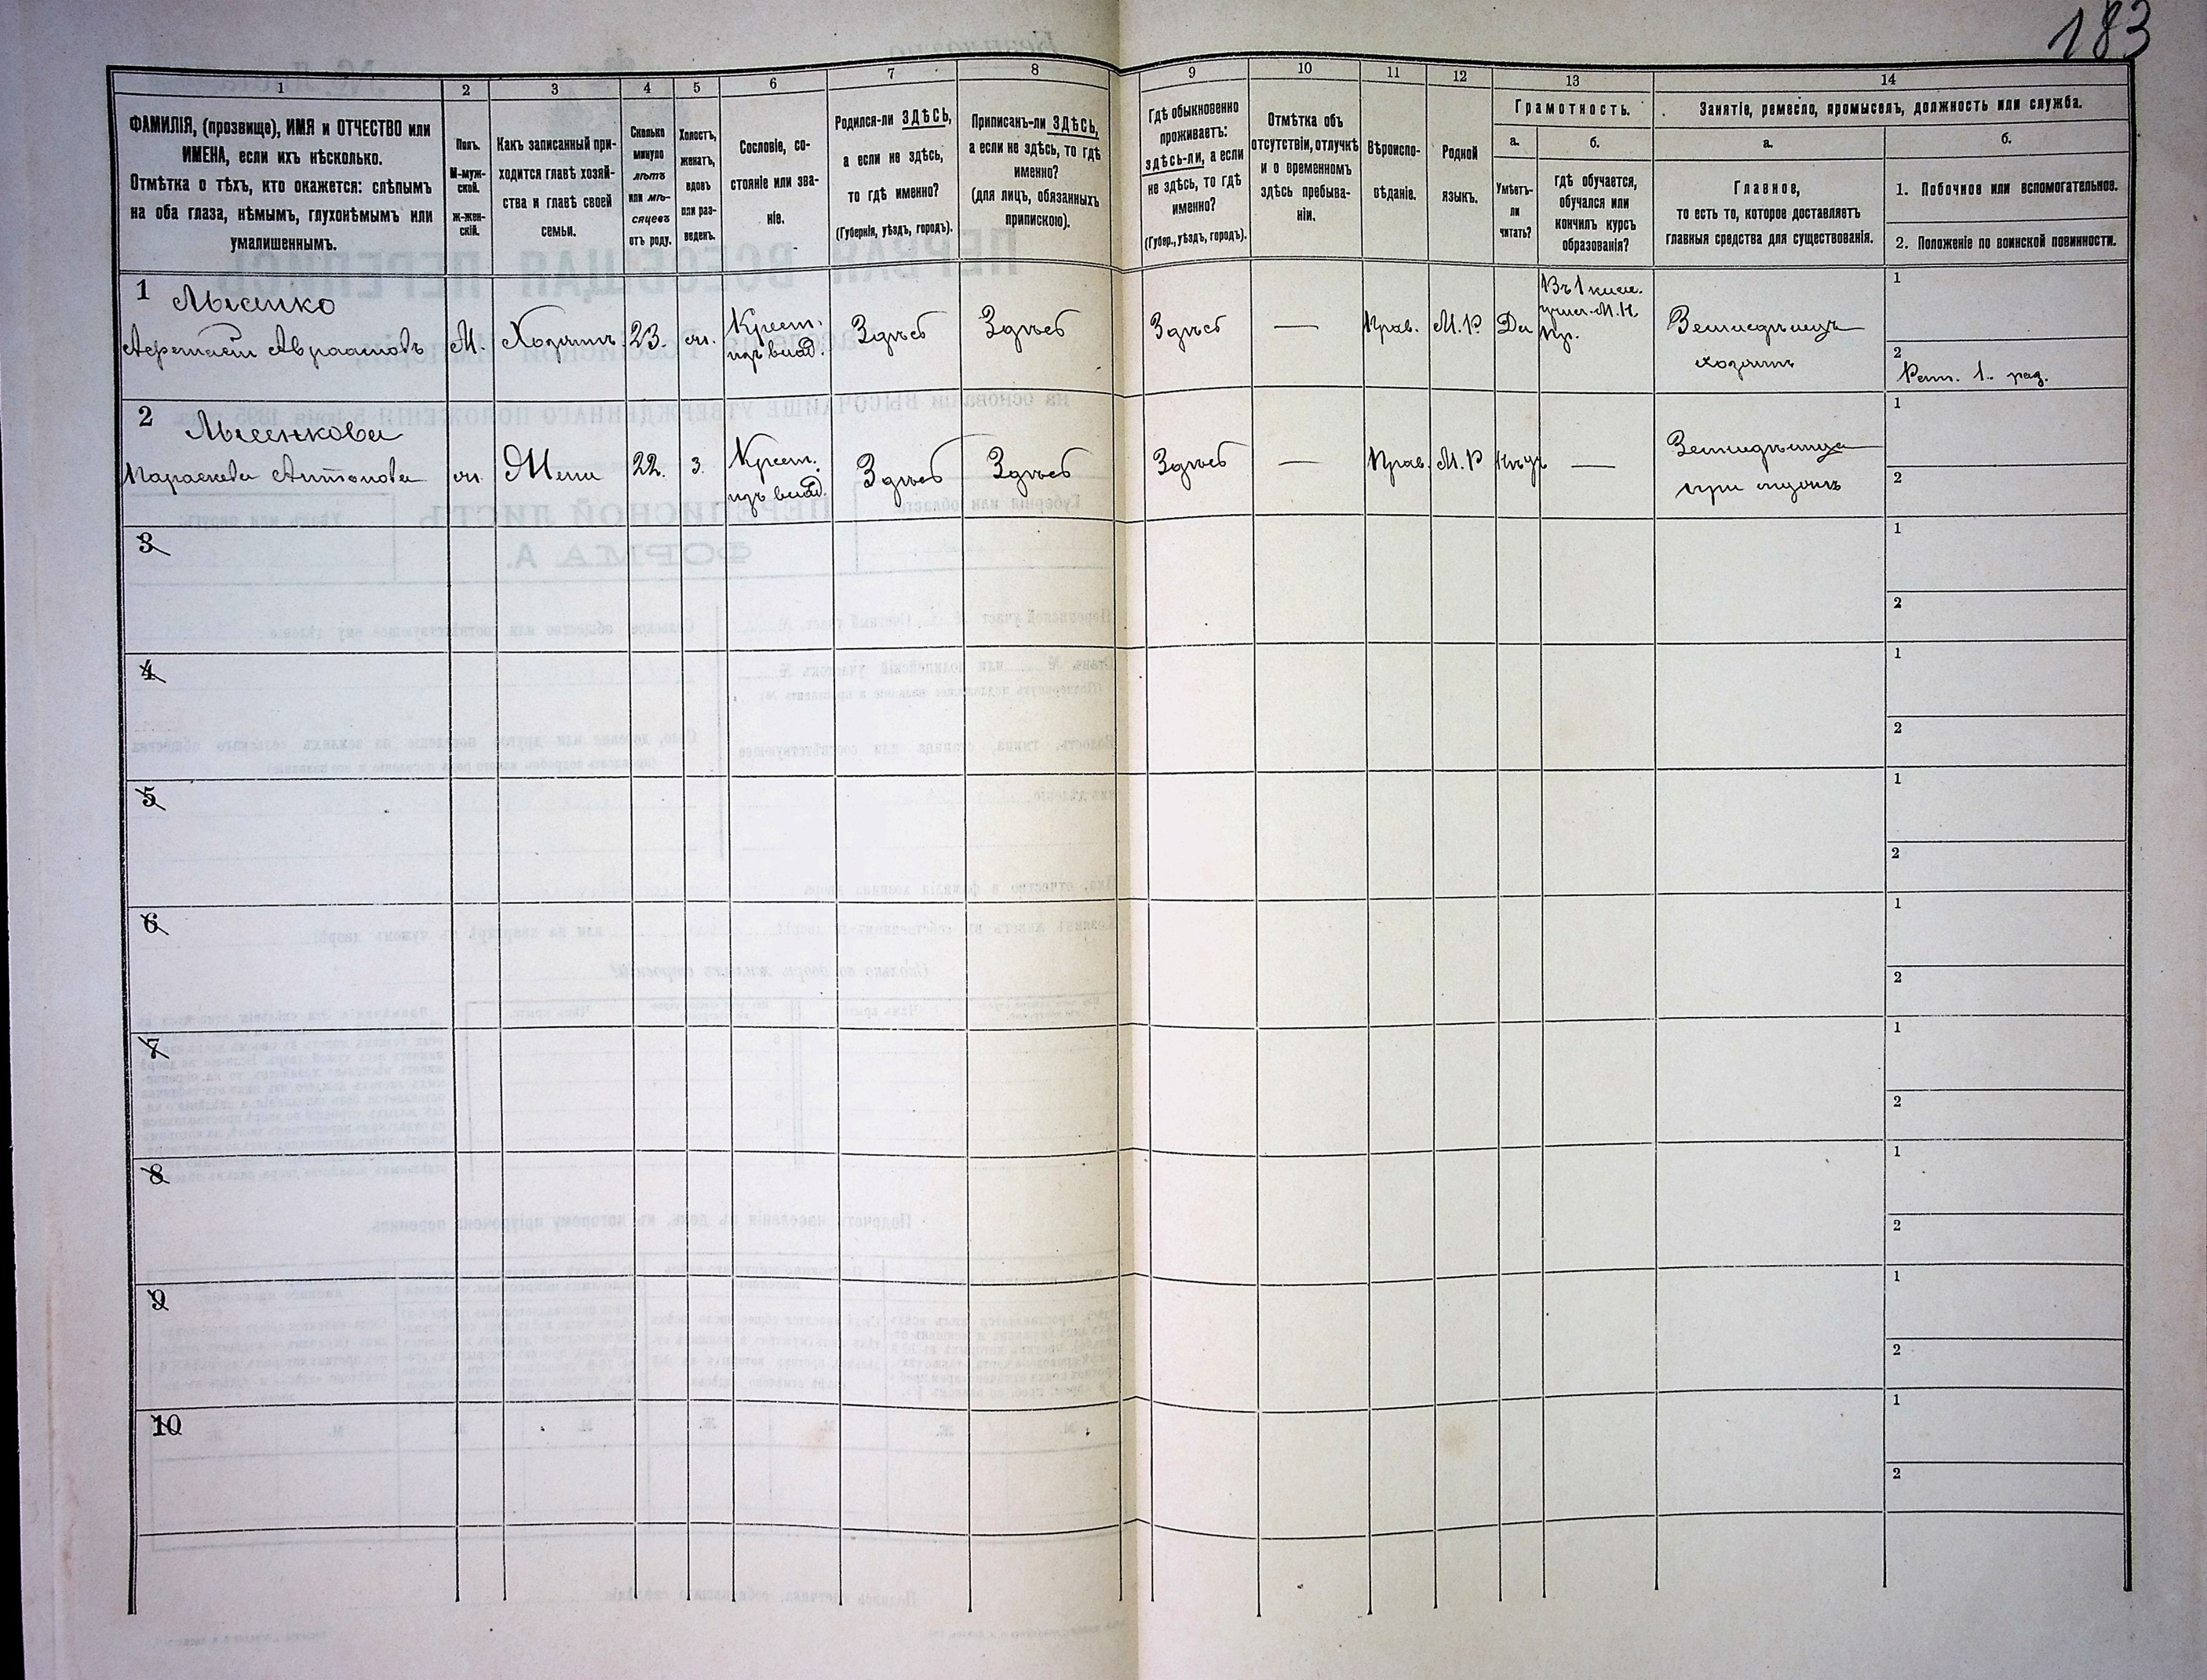 183
1
2
3
4
5
6
7
8
9
10
11
12
13
14
ФАМИЛІЯ, (прозвище), ИМЯ и ОТЧЕСТВО или
ИМЕНА, если ихъ нѣсколько.
Отмѣтка о тѣхъ, кто окажется: слѣпымъ
на оба глаза, нѣмымъ, глухонѣмымъ или
умалишеннымъ.
Полъ.
М-муж-
ской.
ж-жен-
скій.
Какъ записанный при-
ходится главѣ хозяй-
ства и главѣ своей
семьи.
Сколько
минуло
лѣтъ
или мѣ-
сяцевъ
отъ роду.
Холостъ,
женатъ,
вдовъ
или раз-
веденъ.
Сословіе, со-
стояніе или зва-
ніе.
Родился-ли ЗДѢСЬ,
а если не здѣсь,
то гдѣ именно?
(Губернія, уѣздъ, городъ).
Приписанъ-ли ЗДѢСЬ,
а если не здѣсь, то гдѣ
именно?
(для лицъ, обязанныхъ
припискою).
Гдѣ обыкновенно
проживаетъ:
здѣсь-ли, а если
не здѣсь, то гдѣ
именно?
(Губер., уѣздъ, городъ).
Отмѣтка объ
отсутствіи, отлучкѣ
и о временномъ
здѣсь пребыва-
ніи.
Вѣроиспо-
вѣданіе.
Родной
языкъ.
Грамотность.
а.
Умѣетъ-
ли
читать?
б.
гдѣ обучается,
обучался или
кончилъ курсъ
образованія?
Занятіе, ремесло, промыселъ, должность или служба.
а.
Главное,
то есть то, которое доставляетъ
главныя средства для существованія.
б.
1. Побочное или вспомогательное.
2. Положеніе по воинской повинности.
1
Лысенко
Афанасій Авраамовъ
М.
Хозяинъ
23.
ж.
Крест.
изъ влад.
Здѣсь
Здѣсь
Здѣсь
—
Прав.
М.Р.
Да
Въ 1 клас.
учил. М. Н.
Пр.
Земледѣлецъ
хозяинъ
1
2
Рат. 1. раз.
2
Лысенкова
Параскева Антонова
ж.
Жена
22.
з.
Крест.
изъ влад.
Здѣсь
Здѣсь
Здѣсь
—
Прав.
М.Р
Нѣтъ
—
Земледѣлица
при мужѣ
1
2
3
1
2
4
1
2
5
1
2
6
1
2
7
1
2
8
1
2
9
1
2
10
1
2